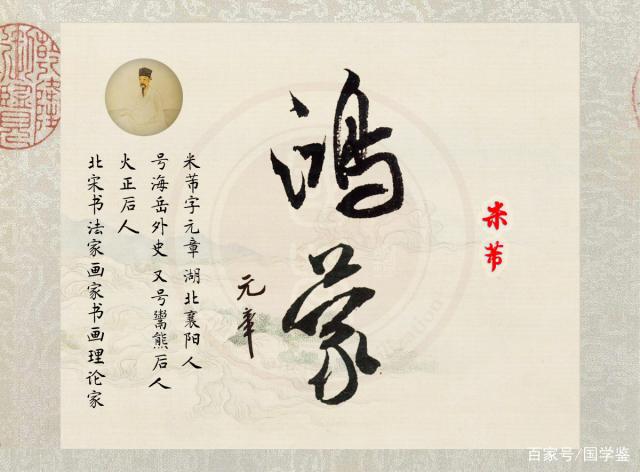 米芾
鸿蒙
元章
米芾字元章 湖北襄阳人
号海岳外史 又号鬻熊后人
火正后人
北宋书法家画家书画理论家
乾隆御览
百家号/国学鉴